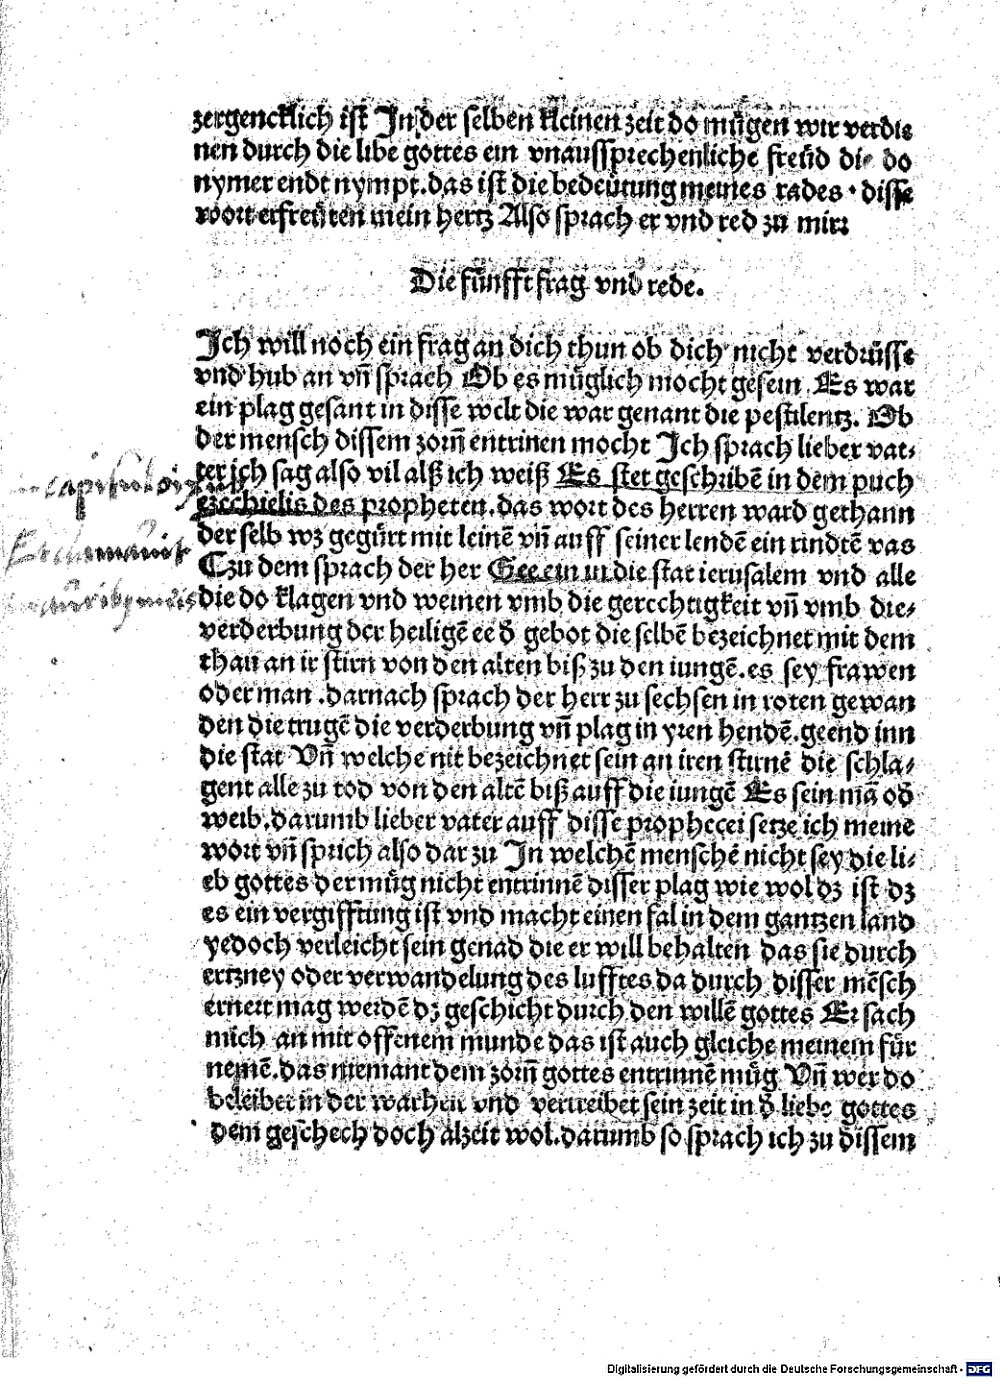 zergencklich ist In der selben kleinen zeit do mügen wir verdie
nen durch die libe gottes ein vnaussprechenliche freüd die do
nymer endt nympt.das ist die bedeütung meines rades · disse
wort erfreüten mein hertz Also sprach er vnd red zu mir:
Die fünfft frag vnd rede.
Ich will noch ein frag an dich thun ob dich nicht verdrüsse
vnd hub an vñ sprach Ob es müglich mocht gesein Es war
ein plag gesant in disse welt die war genant die pestilentz. Ob
der mensch dissem zorñ entrinen mocht Ich sprach lieber vat⸗
ter ich sag also vil alß ich weiß Es stet geschribẽ in dem puch
ezechielis des propheten.das wort des herren ward gethann
der selb wz gegürt mit leinẽ vñ auff seiner lendẽ ein rindtẽ vas
zu dem sprach der her Gee ein in die stat ierusalem vnd alle
die do klagen vnd weinen vmb die gerechtigkeit vñ vmb die⸗
verderbung der heiligẽ ee đ gebot die selbẽ bezeichnet mit dem
thau an ir stirn von den alten biß zu den iungẽ.es sey frawen
oder man .darnach sprach der herr zu sechsen in roten gewan
den die trugẽ die verderbung vñ plag in yren hendẽ.geend inn
die stat Vñ welche nit bezeichnet sein an iren stirnẽ die schla⸗
gent alle zu tod von den altẽ biß auff die iungẽ Es sein mã ođ
weib.darumb lieber vater auff disse prophecei setze ich meine
wort vñ sprich also dar zu In welchẽ menschẽ nicht sey die li⸗
eb gottes der müg nicht entrinnẽ disser plag wie wol dz ist dz
es ein vergifftung ist vnd macht einen fal in dem gantzen land
yedoch verleicht sein genad die er will behalten das sie durch
ertzney oder verwandelung des lufftes da durch disser mẽsch
ernert mag werdẽ dz geschicht durch den willẽ gottes Er sach
mich an mit offenem munde das ist auch gleiche meinem für
nemẽ.das niemant dem zorñ gottes entrinnẽ müg Vñ wer do
beleibet in der warheit vnd vertreibet sein zeit in đ liebe gottes
dem geschech doch alzeit wol.darumb so sprach ich zu dissem
Digitalisierung gefördert durch die Deutsche Forschungsgemeinschaft - DFG